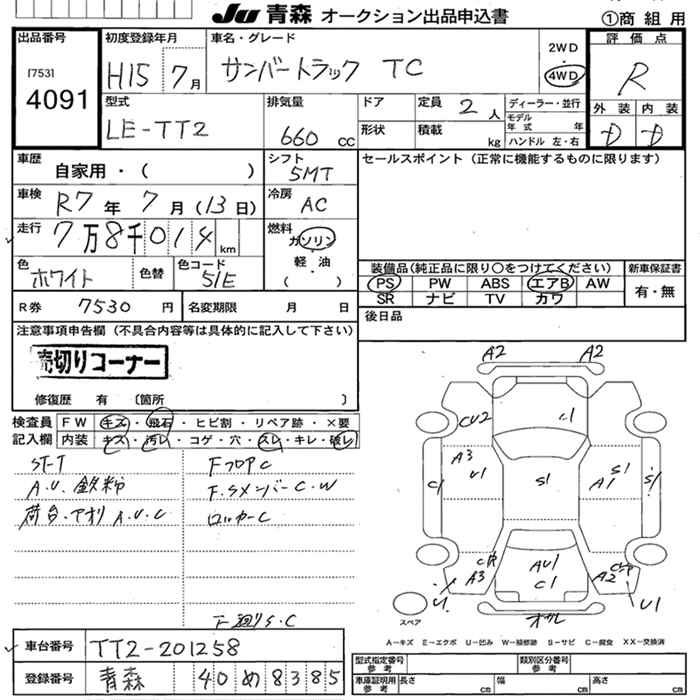 Ju 青森 オークション出品申込書
①商 組 用
出品番号
[753]
4091
初度登録年月
H15 7月
車名・グレード
サンバートラック TC
2WD
4WD
評 価 点
R
型式
LE-TT2
排気量
660 cc
ドア
形状
定員 2 人
積載 kg
ディーラー・並行
モデル年式 年
ハンドル 左・右
外 装 内 装
D D
車歴
自家用・( )
シフト
5MT
セールスポイント (正常に機能するものに限ります)
車検
R7年 7月(13日)
冷房
AC
走行
7万8千014 km
燃料
ガソリン
軽・油
( )
色
ホワイト
色替
色コード
51E
装備品(純正品に限り○をつけてください)
新車保証書
PS PW ABS エアB AW
SR ナビ TV カワ
有・無
R券 7530 円
名変期限 月 日
後日品
注意事項申告欄 (不具合内容等は具体的に記入して下さい)
売切りコーナー
修復歴 有 〔箇所 〕
検査員
記入欄
FW キズ・飛石・ヒビ割・リペア跡・×要
内装 キズ・汚レ・コゲ・穴・スレ・キレ・破レ
ST-T
A.U.鉄粉
荷台・アオリ A.U.C
FフロアC
F.SメンバーC.W
ロッカーC
F廻りS.C
A2 A2
CU2 C1
A3 U1
C1 S1 A1 S1 S1
A3 AU1 C1 A2
U1 U1
スペア
A−キズ E−エクボ U−凹み W−補修跡 S−サビ C−腐食 XX−交換済
車台番号
TT2-201258
登録番号
青森 40 め 8385
型式指定番号
参考
類別区分番号
参考
車庫証明用
参考
長さ cm
幅 cm
高さ cm